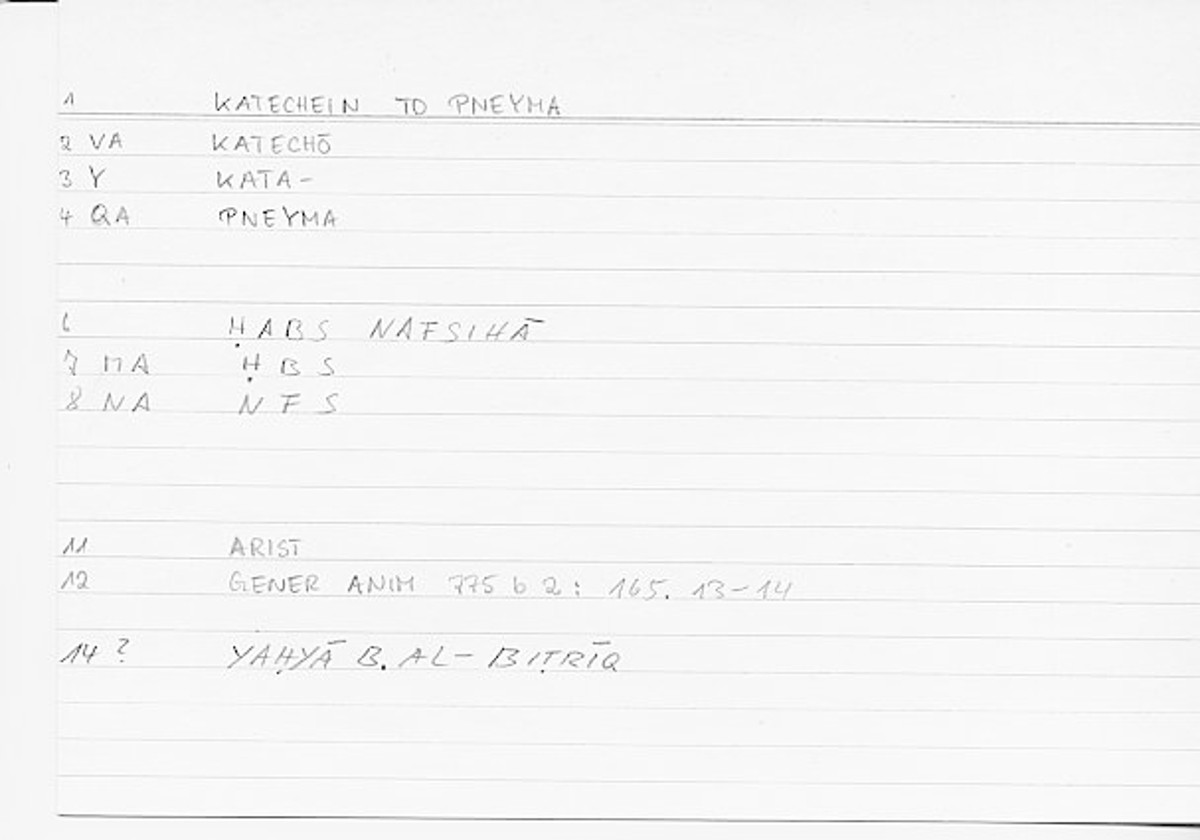 1 KATECHEIN TO PNEYMA
2 VA KATECHŌ
3 Y KATA-
4 QA PNEYMA
6 ḤABS NAFSIHĀ
7 MA ḤBS
8 NA NFS
11 ARIST
12 GENER ANIM 775 b 2: 165. 13-14
14 ? YAḤYĀ B. AL-BIṬRĪQ